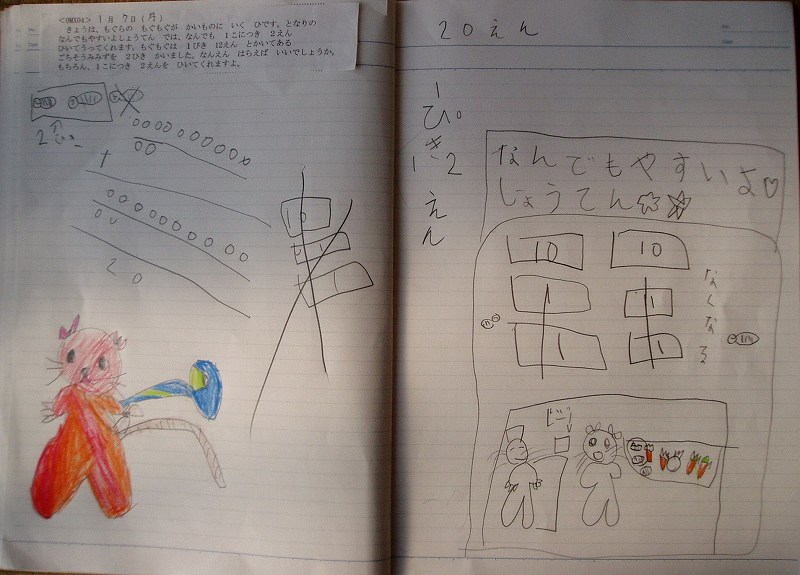 <0MX04> 1月 7日(月)
きょうは、もぐらの もぐもぐが かいものに いく ひです。となりの
なんでもやすいよしょうてん では、なんでも 1こにつき 2えん
ひいてうってくれます。もぐもぐは 1ぴき 12えん とかいてある
ごちそうみみずを 2ひき かいました。なんえん はらえば いいでしょうか。
もちろん、1こにつき 2えんを ひいてくれますよ。
2ひき
20
10
1
1
20えん
1ぴき
12えん
なんでもやすいよ♡
しょうてん☆☆
10 10
1 1
1 1
なくなる